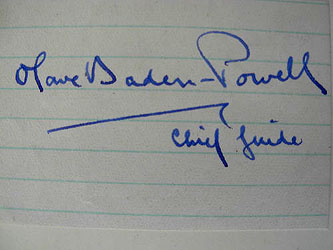 Olave Baden-Powell
Chief Guide